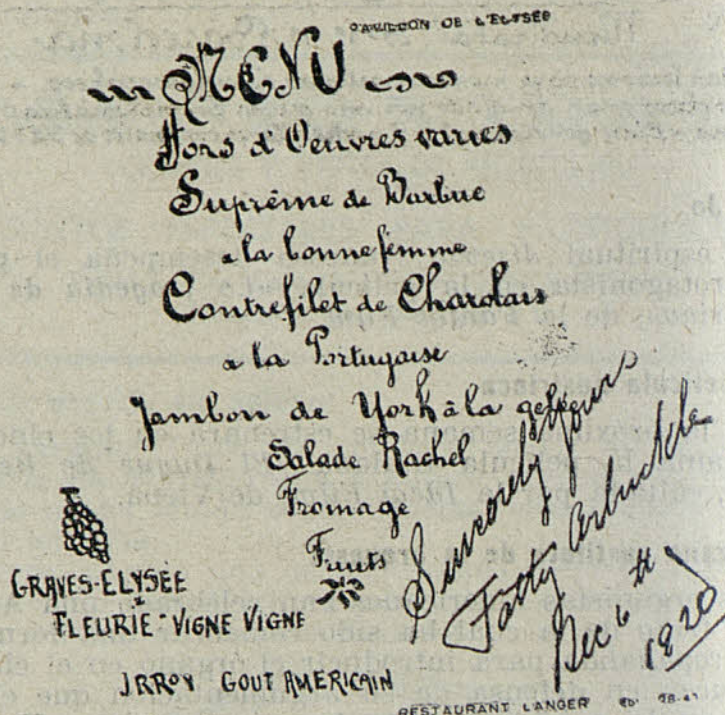 PAVILLON DE L'ELYSÉE
MENU
Hors d'Oeuvres varies
Suprême de Barbue
a la bonne femme
Contrefilet de Charolais
a la Portugaise
Jambon de York à la gelée
Salade Rachel
Fromage
Fruits
GRAVES-ELYSÉE
FLEURIE-VIGNE VIGNE
IRROY GOUT AMERICAIN
Sincerely Yours
Fatty Arbuckle
Dec 6th
1920
RESTAURANT LANGER